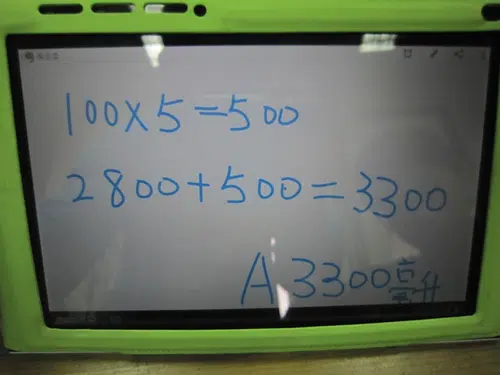 100×5=500
2800+500=3300
A 3300毫升